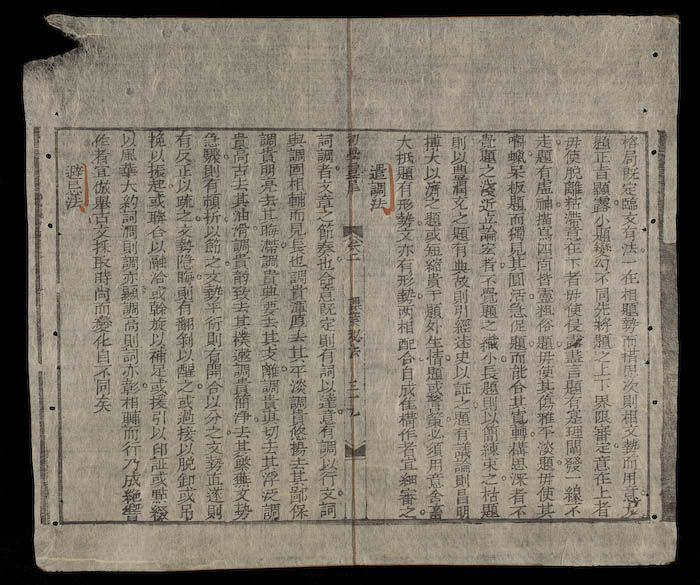 格局既定臨文有法一在相題勢而構思次則相文勢而用意方
題正旨顯露小題變幻不同先將題之上下界限審定意在上者
毋使脫離粘滯意在下者毋使侵露盡言題有定理闡發一線不
走題有虛神描寫四尚皆靈粗俗題毋使其傷雅平淡題毋使其
嚼蠟呆板題而獨見其圓活急促題而能合其寬轉構思深者不
覺題之淺近立論宏者不覺題之纖小長題則以簡練束之枯題
則以豐潤文之題有典故則引經述史以証之題有議論則昌明
博大以濟之題或短縮貴于題外生情題或策必須用意含蓄
大抵題有形勢文亦有形勢兩相配合自成佳構作者宜細審之
遣調法
初學 卷二 三十九
詞調者文章之節奏也命意既定則有詞以達意有調以行文詞
與調固相輔而見長也調貴渾厚去其平淡調貴悠揚去其鄙俗
調貴明亮去其晦滯調貴典要去其支離調貴真切去其浮泛調
貴高古去其油滑調貴韵致去其樸遬調貴簡淨去其繁蕪文勢
急驟則有頓折以節之文勢平衍則有開合以分之文勢直遂則
有反正以疏之文勢隱晦則有翻剝以醒之或過接以脫卸或吊
挽以振起或聯合以融洽或斡旋以補足或援引以印証或點綴
以風華大約詞凋則調亦顯調高則詞亦彰相輔而行乃成絶響
作者宜倣舉古文採取時尚而變化自不同矣
避忌法